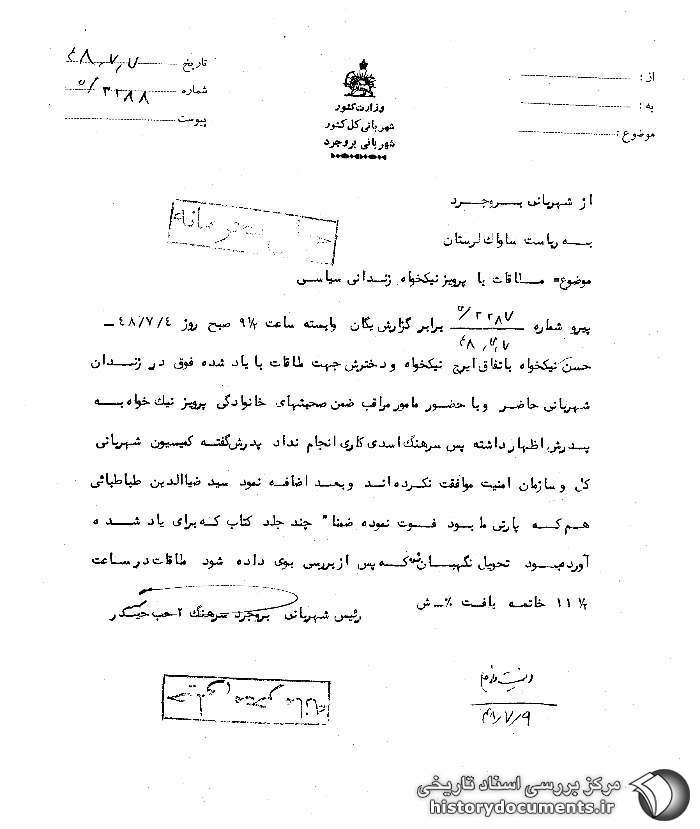 تاریخ ۴۸،۷،۷
شماره ۵/۳۲۸۸
پیوست
وزارت کشور
شهربانی کل کشور
شهربانی بروجرد
از :
به :
موضوع :
از شهربانی بروجرد
به ریاست ساواک لرستان
موضوع= ملاقات با پرویز نیکخواه زندانی سیاسی
پیرو شماره ۵/۳۲۸۷ ۴۸،۷،۷ برابر گزارش یگان وابسته ساعت ۹½ صبح روز ۴۸/۷/۴ ــ
حسن نیکخواه باتفاق ایرج نیکخواه و دخترش جهت ملاقات با یاد شده فوق در زندان
شهربانی حاضر و با حضور مامور مراقب ضمن صحبتهای خانوادگی پرویز نیک خواه به
پدرش اظهار داشته پس سرهنگ اسدی کاری انجام نداد پدرش گفته کمیسیون شهربانی
کل و سازمان امنیت موافقت نکرده اند و بعد اضافه نمود سید ضیاالدین طباطبائی
هم که پارتی ما بود فوت نموده ضمنا" چند جلد کتاب که برای یاد شده
آورده بود تحویل نگهبان شد که پس از بررسی بوی داده شود ملاقات در ساعت
۱۱½ خاتمه یافت ٪ ـ ش
رئیس شهربانی بروجرد سرهنگ ۲
خیلی محرمانه
خیلی محرمانه
۴۸/۷/۹
مرکز بررسی اسناد تاریخی
historydocuments.ir